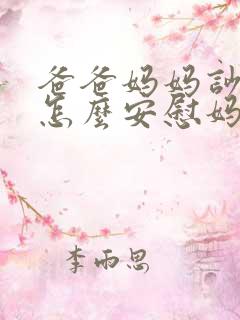 爸爸妈妈訠
怎麼安慰妈
李雨思